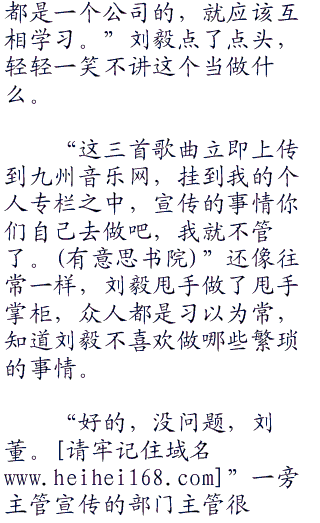 都是一个公司的，就应该互
相学习。”刘毅点了点头，
轻轻一笑不讲这个当做什
么。
“这三首歌曲立即上传
到九州音乐网，挂到我的个
人专栏之中，宣传的事情你
们自己去做吧，我就不管
了。(有意思书院)”还像往
常一样，刘毅甩手做了甩手
掌柜，众人都是习以为常，
知道刘毅不喜欢做哪些繁琐
的事情。
“好的，没问题，刘
董。[请牢记住域名
www.heihei168.com]”一旁
主管宣传的部门主管很